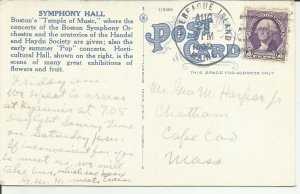 SYMPHONY HALL.
Boston's "Temple of Music," where the
concerts of the Boston Symphony Or-
chestra and the oratorios of the Handel
and Haydn Society are given; also the
early summer "Pop" concerts. Horti-
cultural Hall, shown on the right, is
the scene of many great exhibitions of
flowers and fruit.
We expect to arrive
at Hyannis at 7.05
Daylight Saving Time
on Saturday p.m.
If inconvenient for you
to meet us, we will
take bus, which we hope
G. M. H. meets train.
POST CARD
ISLAND
AUG
PM
THIS SPACE FOR ADDRESS ONLY
Mr. Geo. W. Harper, Jr
Chatham
Cape Cod
Mass